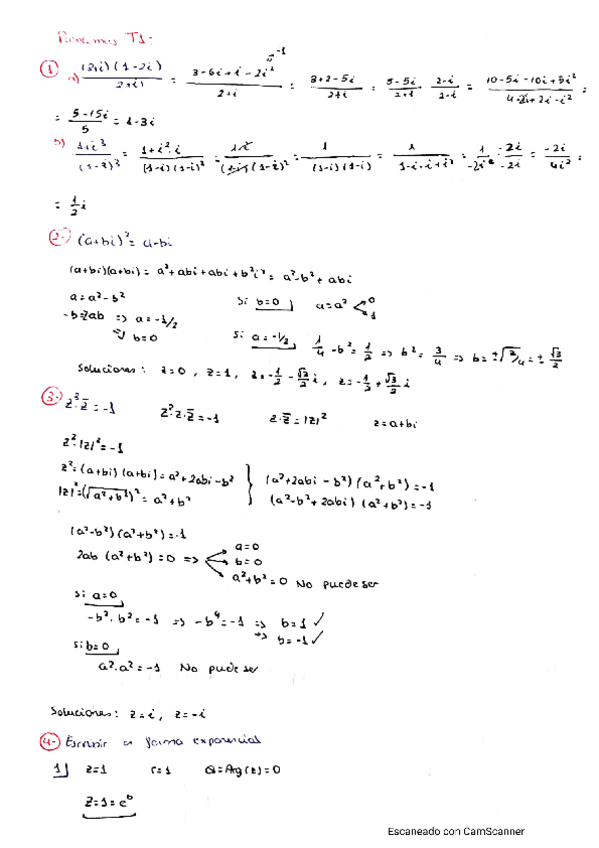 Problemas T1:
1 a) (3+i)(1-2i) / 2+i = 3-6i+i-2i² / 2+i = 3+2-5i / 2+i = 5-5i / 2+i · 2-i / 2-i = 10-5i-10i+5i² / 4-2i+2i-i² =
-1
= 5-15i / 5 = 1-3i
b) 1+i³ / (1-i)³ = 1+i²·i / (1-i)(1-i)² = 1-i / (1-i)(1-i)² = 1 / (1-i)(1-i) = 1 / 1-i-i+i² = 1 / -2i · -2i / -2i = -2i / 4i² =
= 1/2 i
2- (a+bi)² = a-bi
(a+bi)(a+bi) = a²+abi+abi+b²i² = a²-b²+abi
a = a²-b² Si b=0 a=a² 0 1
-b=2ab => a=-1/2
=> b=0
Si a=-1/2 1/4 - b² = 1/2 => b² = 3/4 => b = ±√3/4 = ± √3/2
Soluciones: z=0, z=1, z=-1/2 - √3/2 i, z=-1/2 + √3/2 i
3- z³·z̄ = -1 z²·z·z̄ = -1 z·z̄ = |z|² z=a+bi
z²·|z|² = -1
z² = (a+bi)(a+bi) = a²+2abi-b² } (a²+2abi-b²)(a²+b²) = -1
|z|² = (√a²+b²)² = a²+b² } (a²-b²+2abi)(a²+b²) = -1
(a²-b²)(a²+b²) = -1
2ab (a²+b²) = 0 => a=0
b=0
a²+b²=0 No puede ser
Si a=0
-b²·b² = -1 => -b⁴ = -1 => b=1 ✓
=> b=-1 ✓
Si b=0
a²·a² = -1 No puede ser
Soluciones: z=i, z=-i
4- Escribir en forma exponencial
1] z=1 r=1 θ=Arg(z)=0
z=1=e⁰
Escaneado con CamScanner